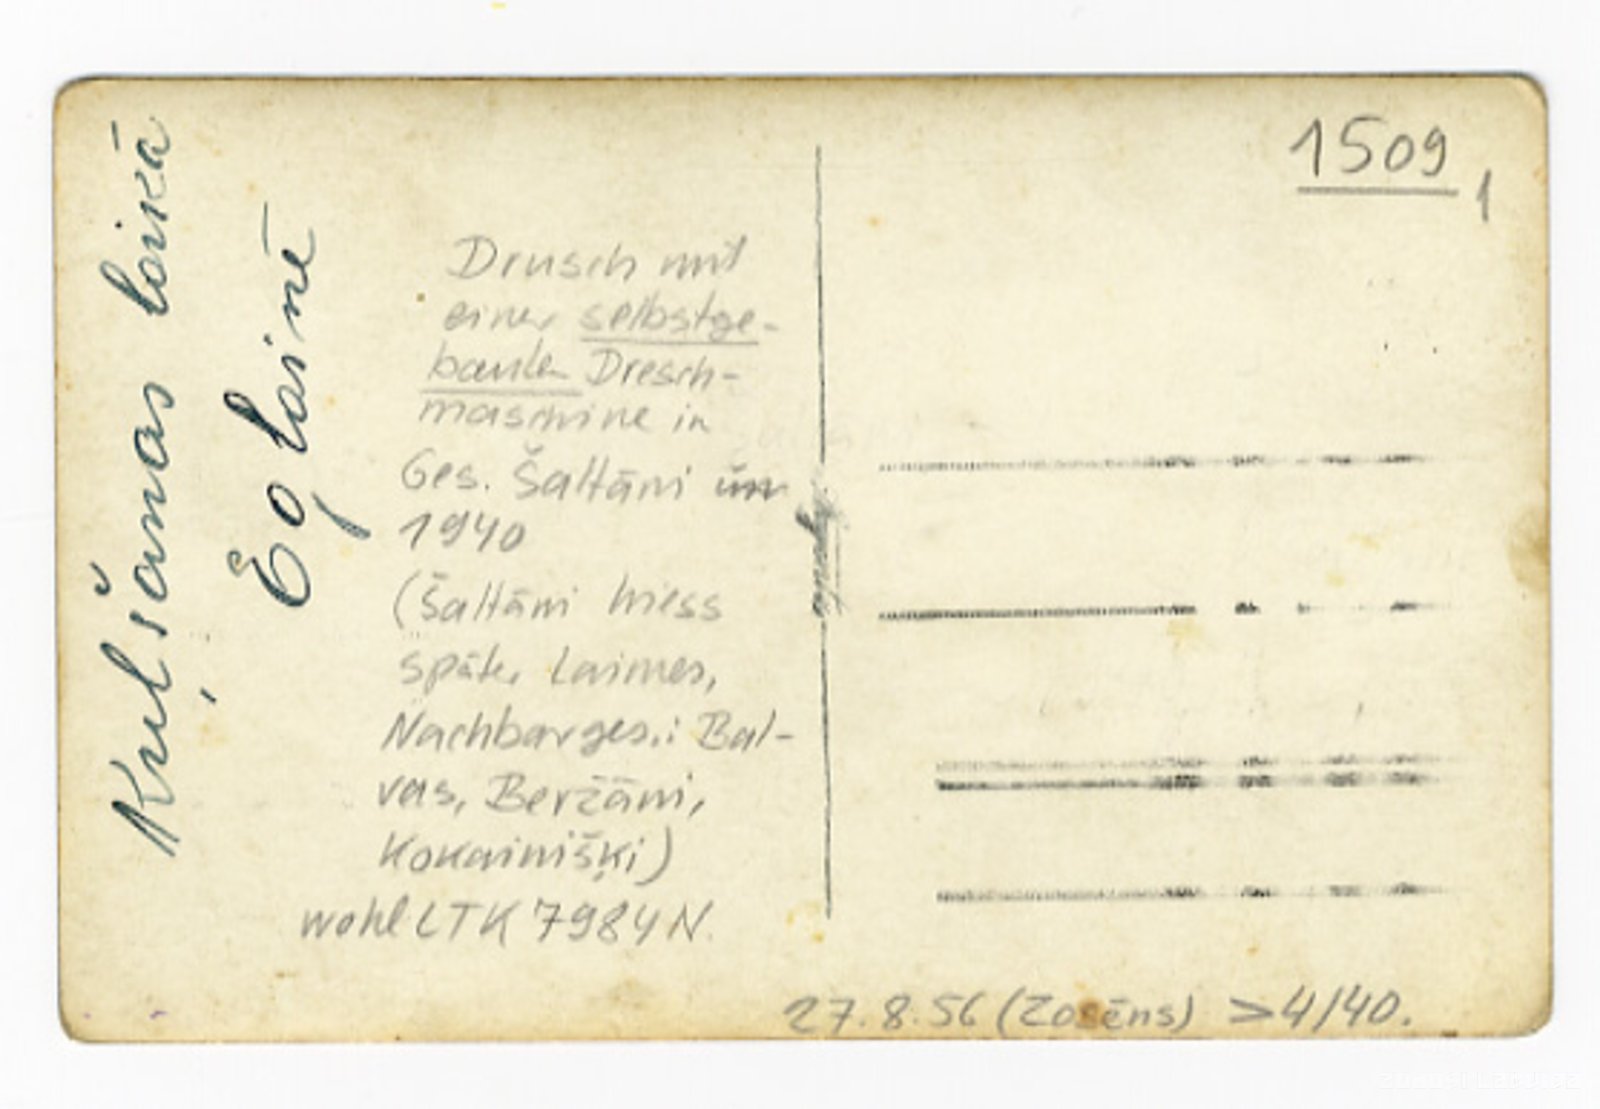 Kuļšanas laikā
Eglainē
Drusch mit
einer selbstge-
bauten Dresch-
maschine in
Ges. Šaltāni um
1940
(Šaltāni hiess
später Laimes,
Nachbarges.: Bal-
vas, Beržāni,
Kokainišķi)
wohl LTK 7984 N.
1509
1
27.8.56 (Zosēns) > 4/40.